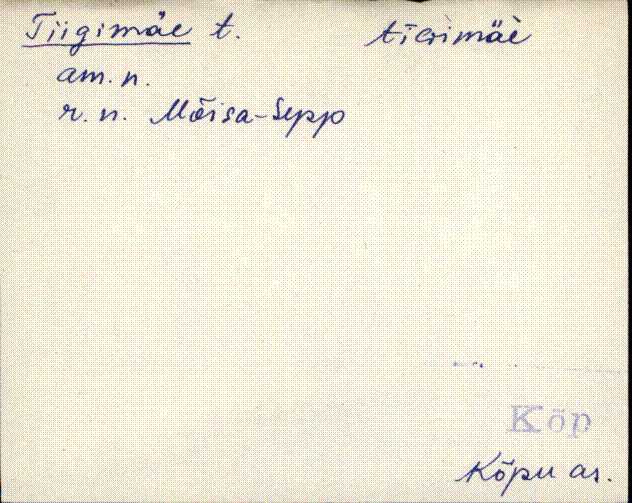 Tiigimäe t. tīɢimäè
am. n.
r. n. Mõisa-Sepp
Kõp
Kõpu as.